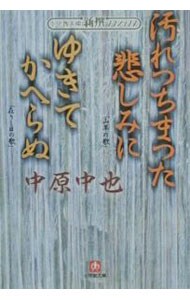 汚れつちまつた
悲しみに
「山羊の歌」
ゆきて
かへらぬ
「在りし日の歌」
中原中也
小学館文庫